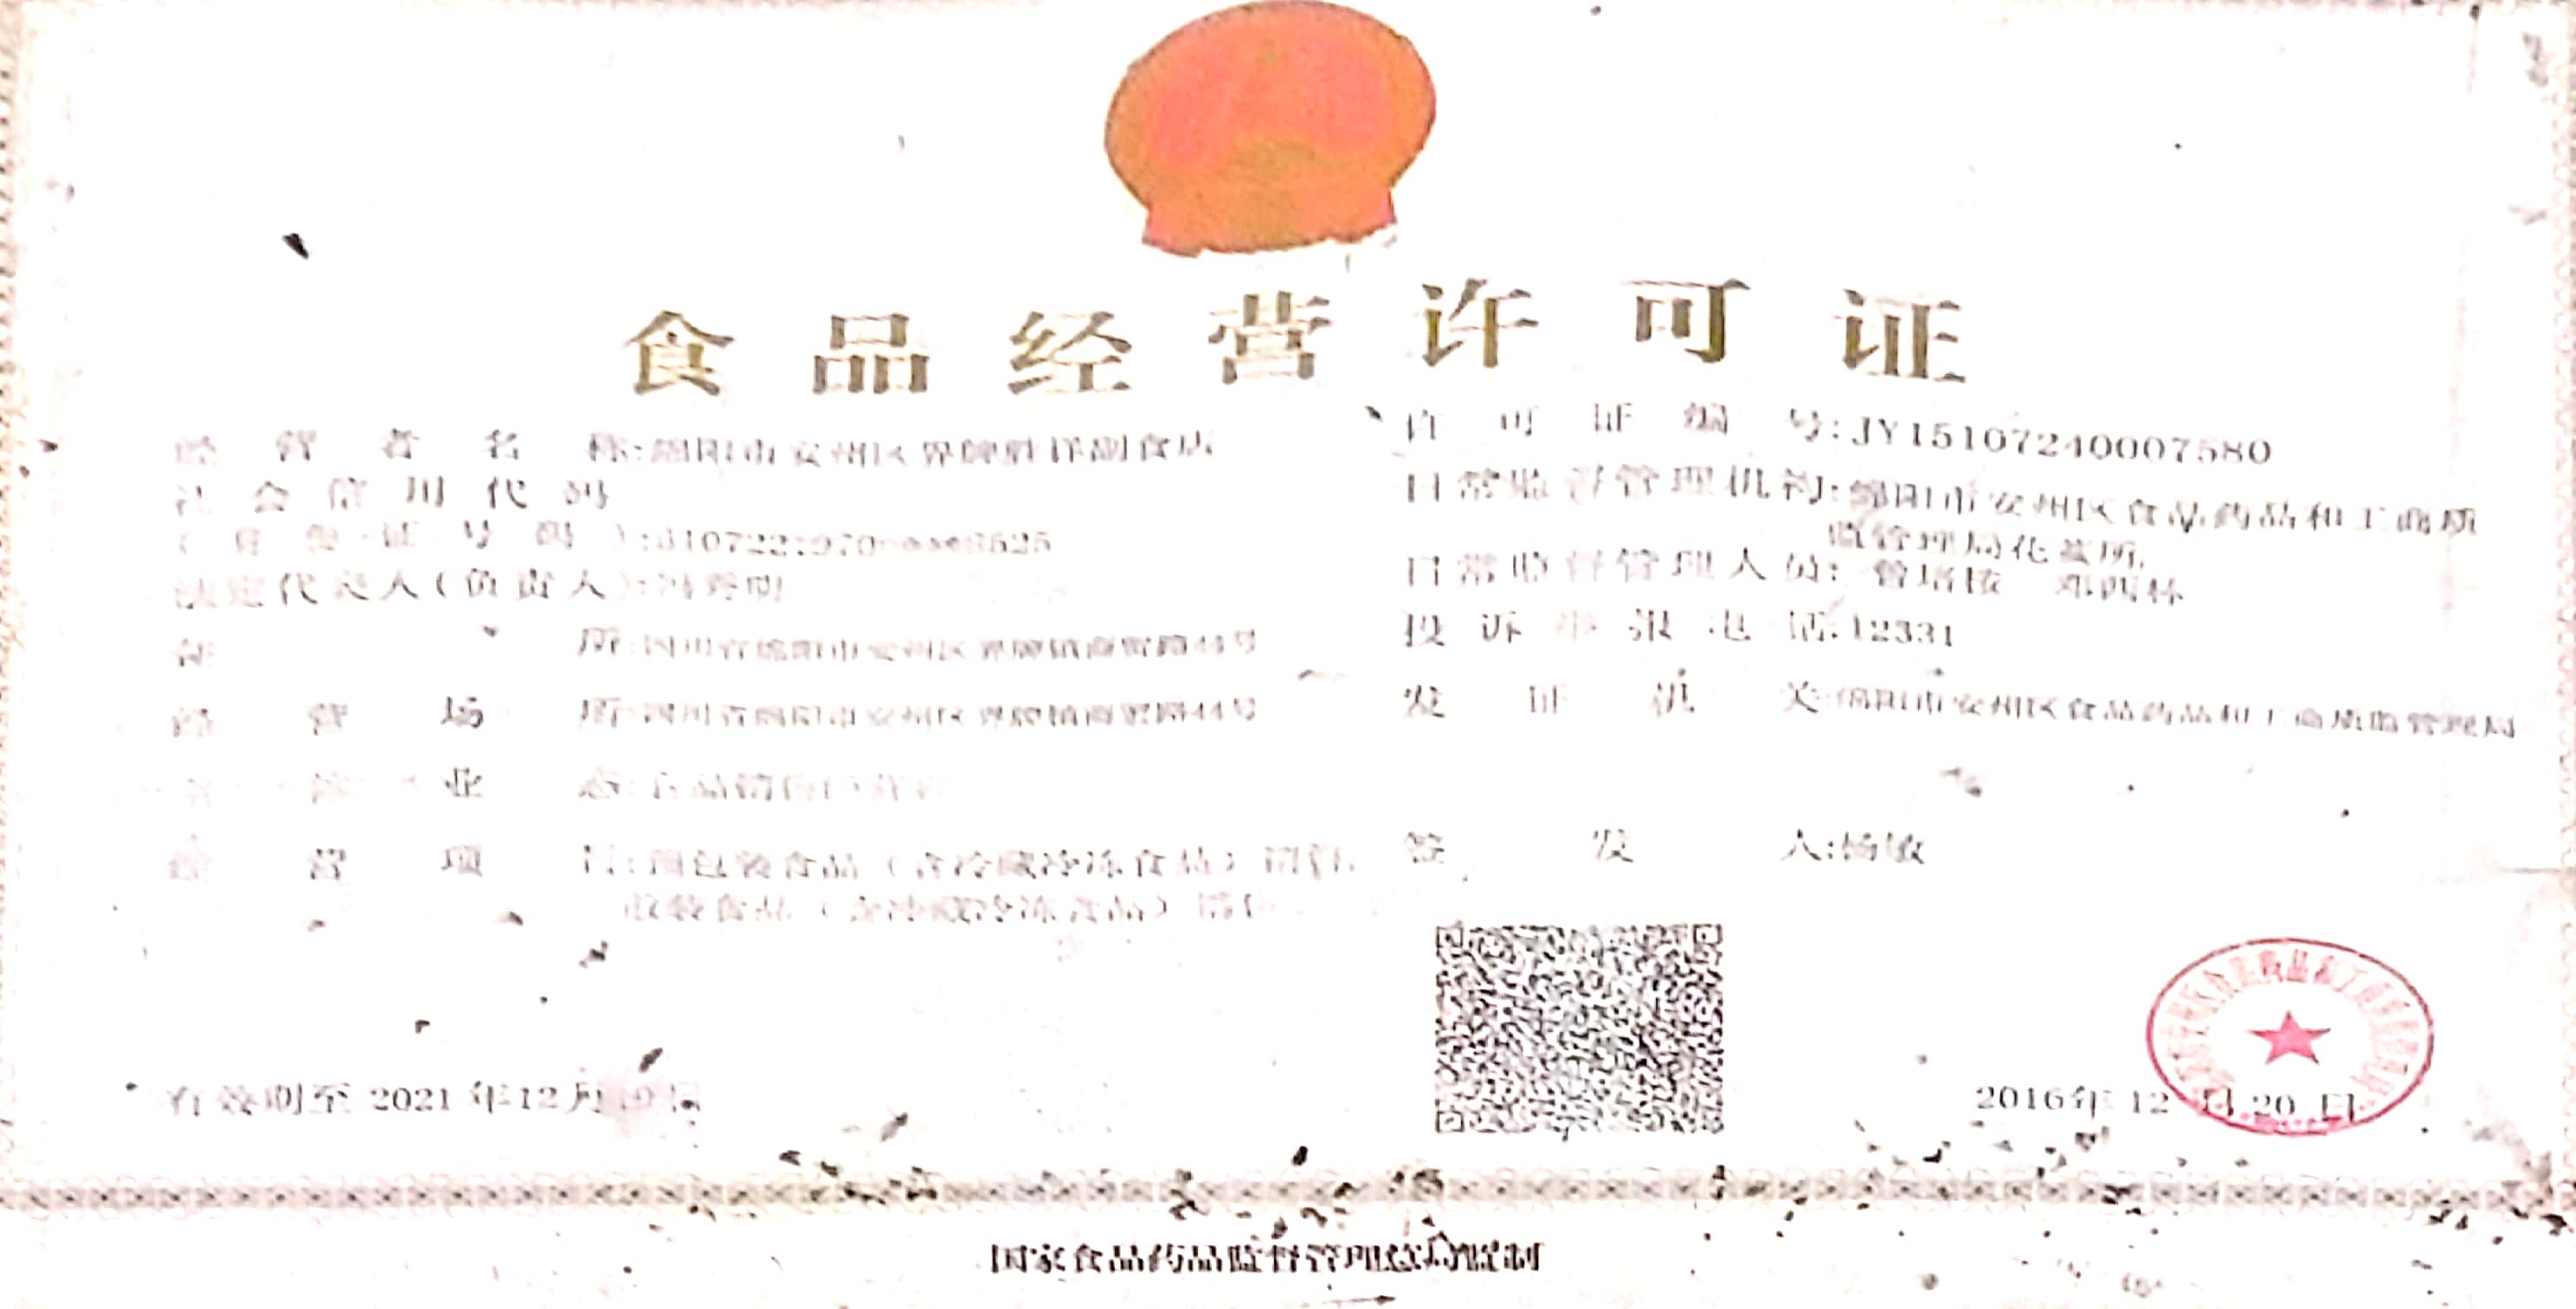 食品经营许可证
经营者名称:绵阳市安州区界牌胜洋副食店
社会信用代码
(身份证号码):
法定代表人(负责人):
住所:四川省绵阳市安州区界牌镇商贸路44号
经营场所:四川省绵阳市安州区界牌镇商贸路44号
主体业态:食品销售经营者
经营项目:预包装食品(含冷藏冷冻食品)销售,
散装食品(含冷藏冷冻食品)销售
有效期至 2021 年 12 月 19 日
许可证编号:JY15107240007580
日常监督管理机构:绵阳市安州区食品药品和工商质
监管理局花荄所
日常监督管理人员: 邓西林
投诉举报电话:12331
发证机关:绵阳市安州区食品药品和工商质监管理局
签发人:杨敏
2016年 12 月 20 日
国家食品药品监督管理总局监制